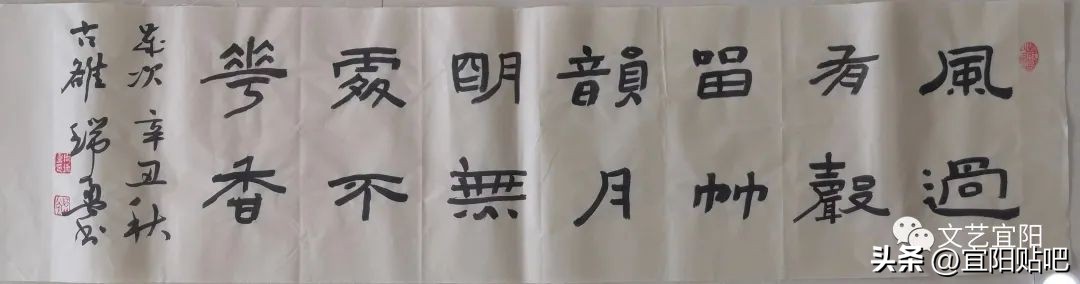 風過
有聲
留竹
韻月
明無
處不
華香
歲次辛丑秋
古雒 瑞
文艺宜阳
头条 @宜阳贴吧